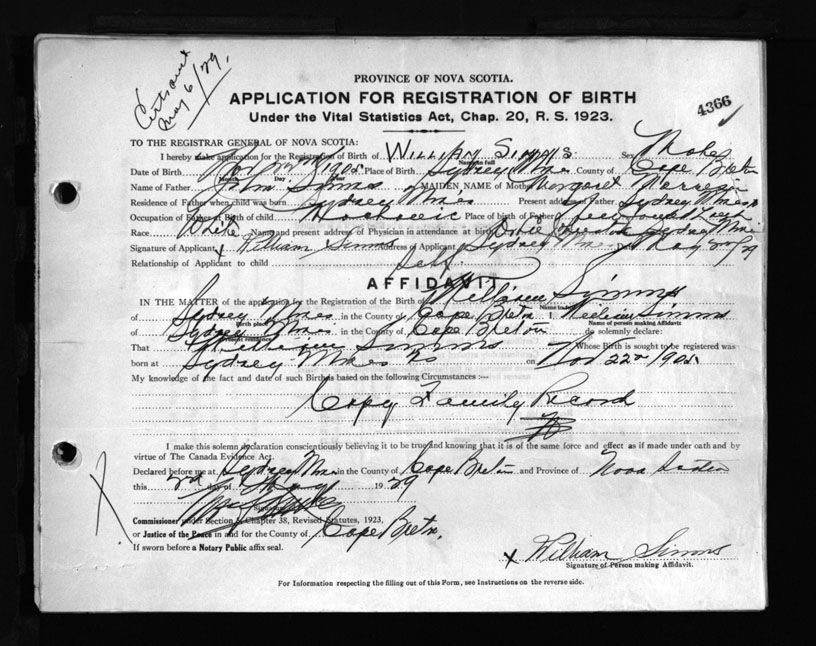 Cert sent
May 6/29.
PROVINCE OF NOVA SCOTIA.
4366
APPLICATION FOR REGISTRATION OF BIRTH
Under the Vital Statistics Act, Chap. 20, R. S. 1923.
TO THE REGISTRAR GENERAL OF NOVA SCOTIA:
I hereby make application for the Registration of Birth of William Simms Sex Male
Name in full
Date of Birth Nov 1905 Place of Birth Sydney Mines County of Cape Breton
Month Day Year
Name of Father John Simms MAIDEN NAME of Mother Margaret
Residence of Father when child was born Sydney Mines Present address of Father Sydney Mines
Occupation of Father at Birth of child Mechanic Place of birth of Father
Race White Name and present address of Physician in attendance at birth Sydney Mines
Signature of Applicant x William Simms Address of Applicant Sydney Mines Date May 2nd/29
Relationship of Applicant to child Self
AFFIDAVIT
IN THE MATTER of the application by the Registration of the Birth of William Simms
Name in full
of Sydney Mines in the County of Cape Breton I, William Simms
Birth place Name of person making Affidavit
of Sydney Mines in the County of Cape Breton do solemnly declare:
Present residence
That William Simms Whose Birth is sought to be registered was
born at Sydney Mines NS on Nov 22nd 1905
My knowledge of the fact and date of such Birth is based on the following Circumstances:—
Copy Family Record
I make this solemn declaration conscientiously believing it to be true and knowing that it is of the same force and effect as if made under oath and by
virtue of The Canada Evidence Act.
Declared before me at Sydney Mines in the County of Cape Breton and Province of Nova Scotia
this 2nd day of May 1929
Signature
Commissioner under Section Chapter 38, Revised Statutes, 1923,
or Justice of the Peace in and for the County of Cape Breton.
If sworn before a Notary Public affix seal.
x William Simms
Signature of Person making Affidavit.
For Information respecting the filling out of this Form, see Instructions on the reverse side.